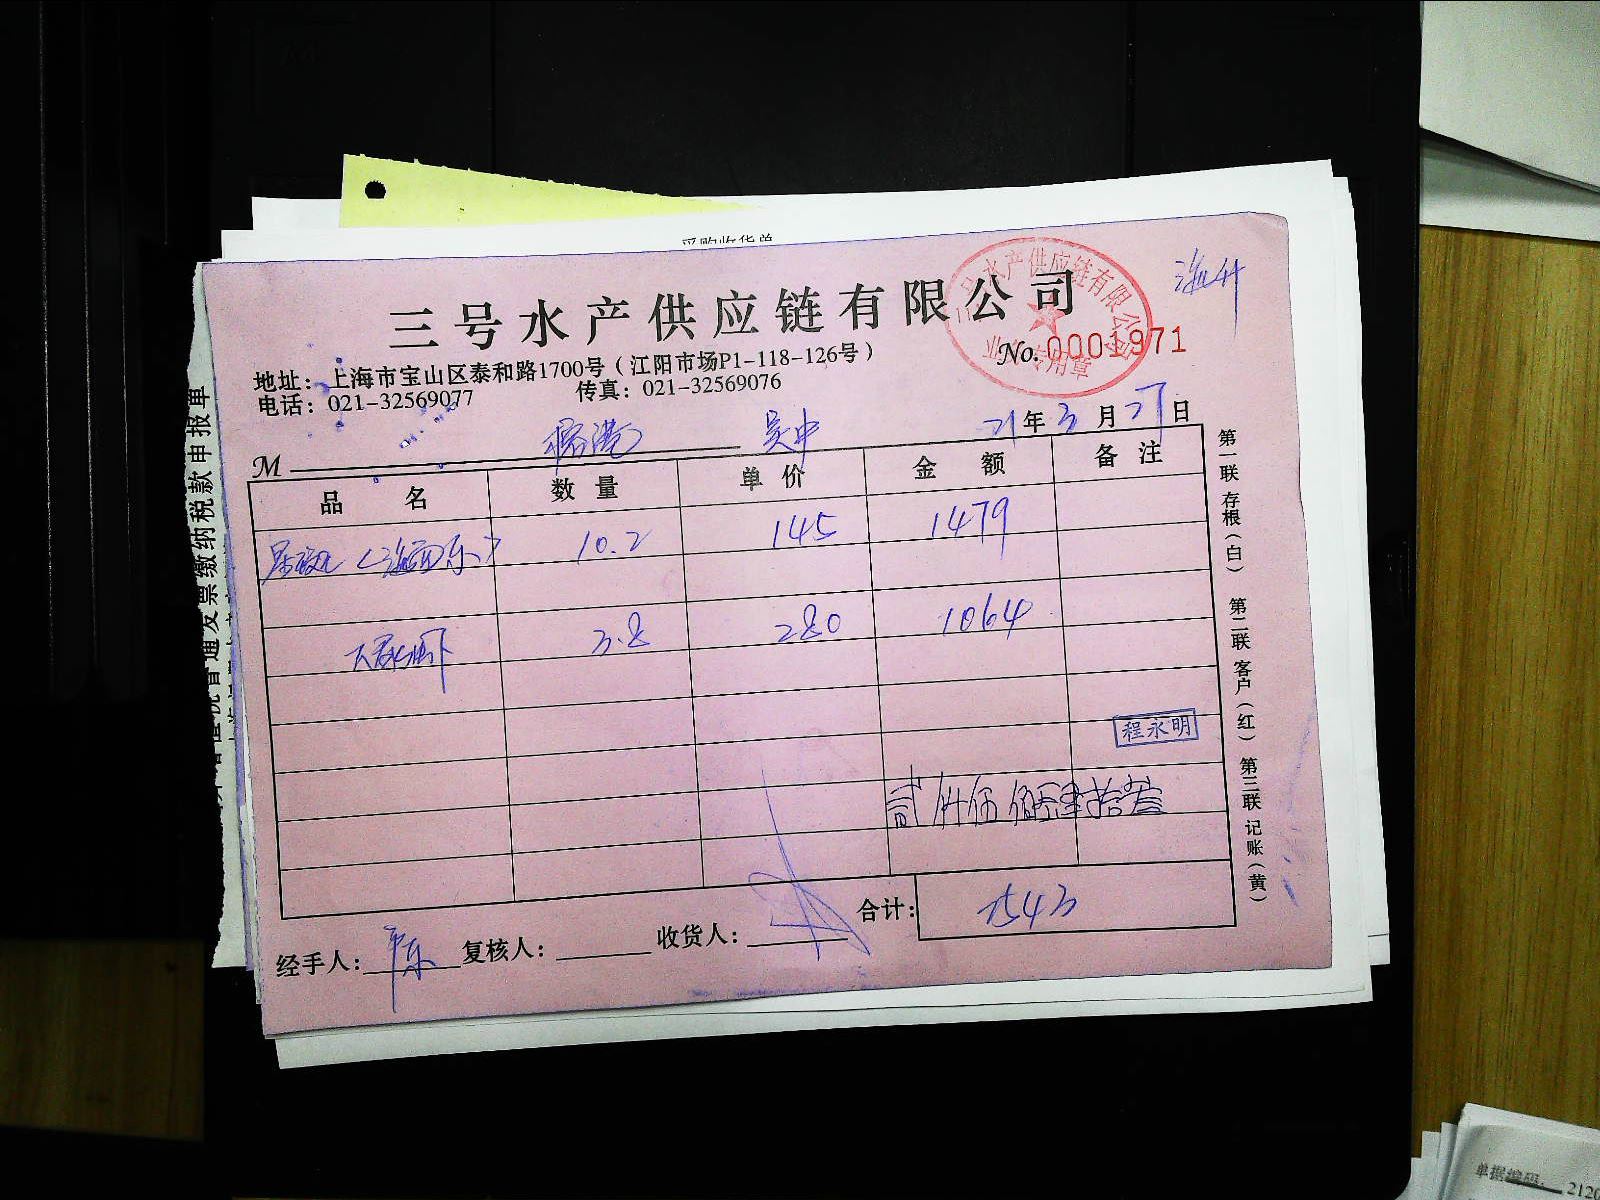 采购收货单
三号水产供应链有限公司
No. 0001971
地址：上海市宝山区泰和路1700号（江阳市场P1-118-126号）
电话：021-32569077 传真：021-32569076
三号水产供应链有限公司
业务专用章
M 吴中 21年3月27日
品名 数量 单价 金额 备注
10.2 145 1479
3.8 280 1064
程永明
贰仟伍佰肆拾叁
合计：2543
经手人： 复核人： 收货人：
第一联 存根（白） 第二联 客户（红） 第三联 记账（黄）
普通发票缴纳税款申报单
单据编码：